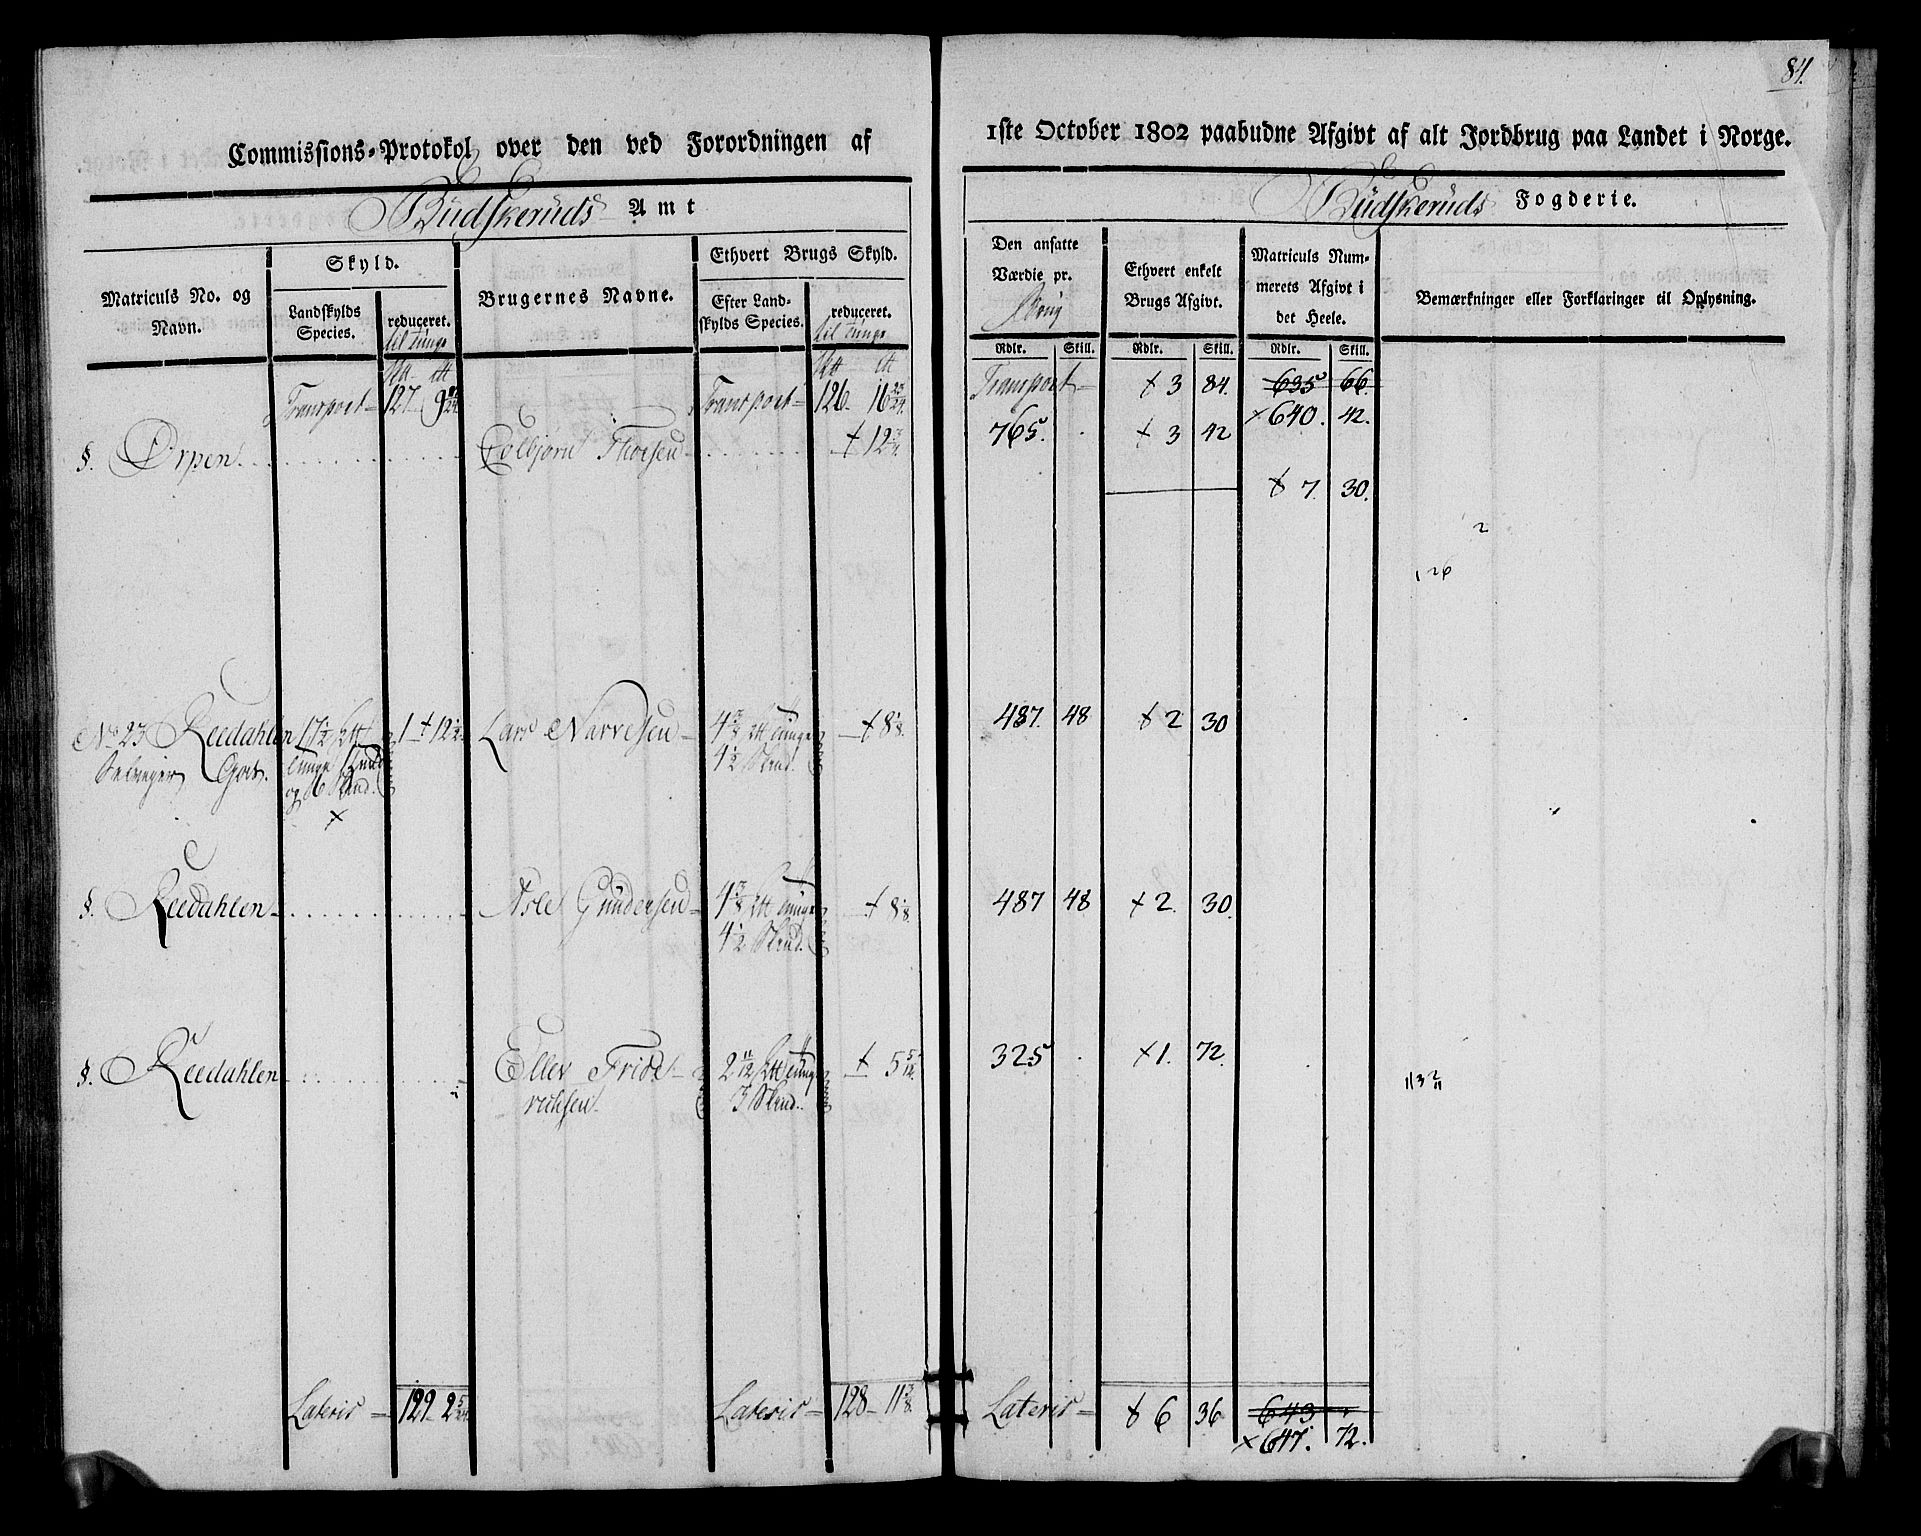 84.
Commissions-Protokol over den ved Forordningen af
1ste October 1802 paabudne Afgivt af alt Jordbrug paa Landet i Norge.
Büdskerüds Amt
Büdskerüds Fogderie.
Matriculs No. og Navn.
Skyld.
Landskylds Species.
reduceret.
til tunge
Brugernes Navne.
Ethvert Brugs Skyld.
Efter Landskylds Species.
reduceret.
til tunge
Den ansatte Værdie pr.
Brug
Ethvert enkelt Brugs Afgivt.
Matriculs Nummerets Afgivt i det Heele.
Bemærkninger eller Forklaringer til Oplysning.
Rdlr. Skill. Rdlr. Skill. Rdlr. Skill.
Transport 127 Transport 126 16 Transport + 3 84. 635 66
×640. 42.
§. Ørpen Colbjørn Thorsen +12 765. + 3 42
+ 7. 30.
2
No 23 Reedahlen 17½ 1 +12½ Lars Narvesen 4 tunge 4½ +8⅛ 487. 48 + 2 30
Gods. tunge og 6
×
§. Reedahlen Asle Gündersen 4 tunge 4½ +8⅛ 487 48 + 2. 30.
§. Reedahlen Eller Fride- 2 11/12 tunge + 5 5/12 325 +1. 72
richsen 3
Lateris 129 2 Lateris 128 11 Lateris + 6 36 643
×647. 72.